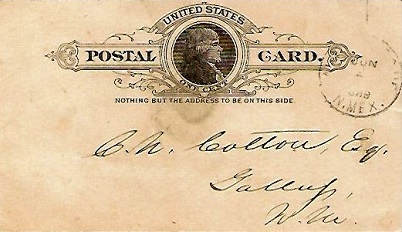 UNITED STATES
POSTAL CARD.
ONE CENT
NOTHING BUT THE ADDRESS TO BE ON THIS SIDE.
JUN
N. MEX.
C. N. Cotton, Esq.
Gallup,
N. M.